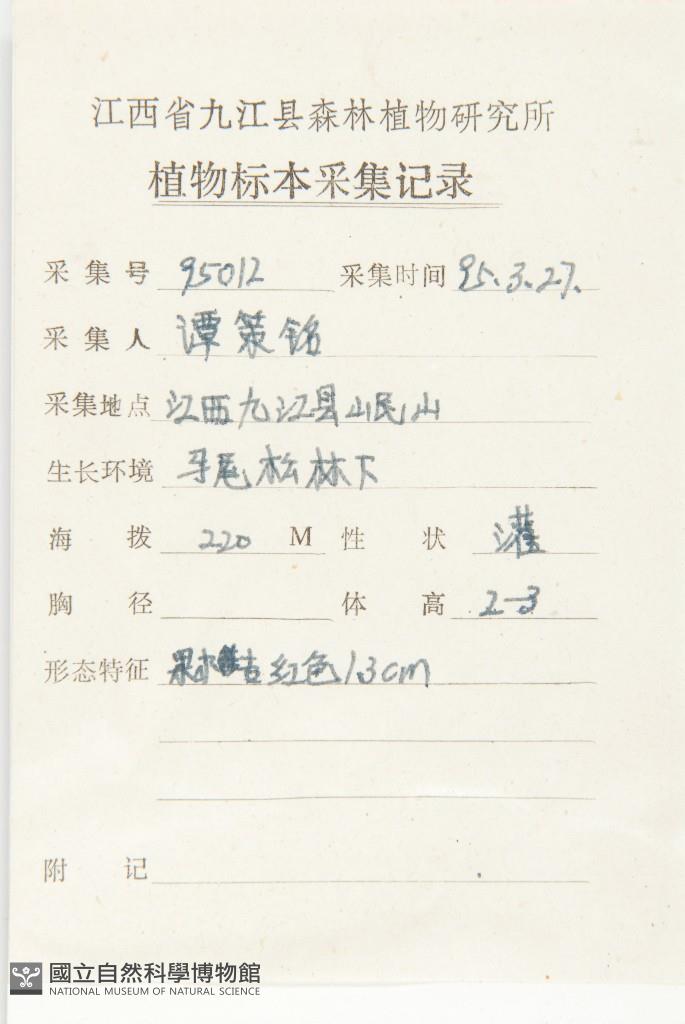 江西省九江县森林植物研究所
植物标本采集记录
采集号 95012 采集时间 95.3.27.
采集人 谭策铭
采集地点 江西九江县岷山
生长环境 马尾松林下
海拨 220 M 性状 灌
胸径 体高 2-3
形态特征 果 红色 1.3cm
附记
國立自然科學博物館
NATIONAL MUSEUM OF NATURAL SCIENCE